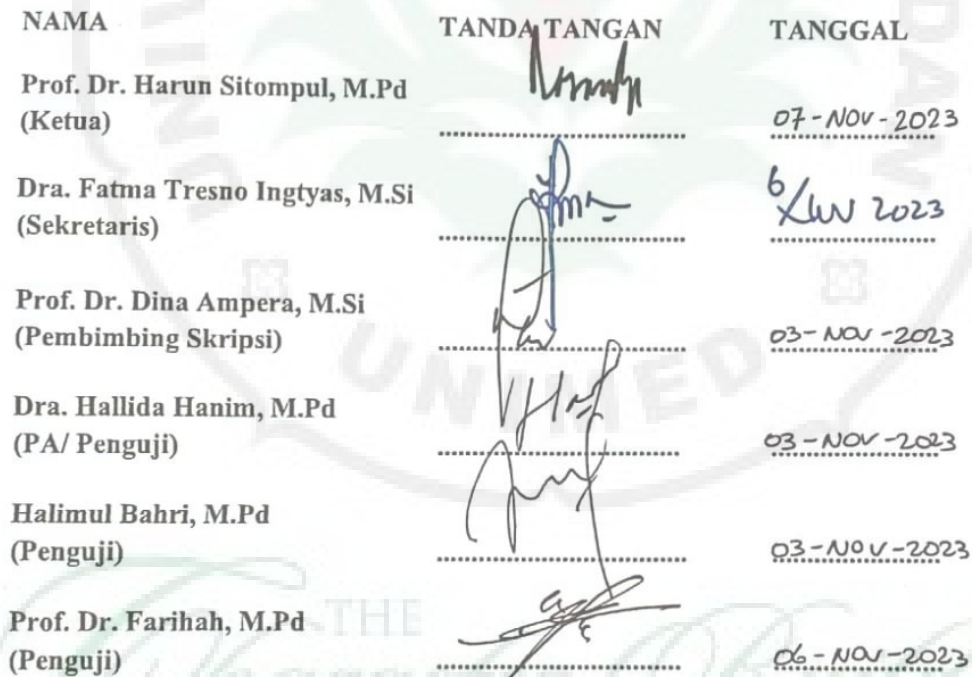 NAMA TANDA TANGAN TANGGAL
Prof. Dr. Harun Sitompul, M.Pd
(Ketua) 07-NOV-2023
Dra. Fatma Tresno Ingtyas, M.Si
(Sekretaris) 6/ 2023
Prof. Dr. Dina Ampera, M.Si
(Pembimbing Skripsi) 03-NOV-2023
UNIMED
Dra. Hallida Hanim, M.Pd
(PA/ Penguji) 03-NOV-2023
Halimul Bahri, M.Pd
(Penguji) 03-NOV-2023
THE
Prof. Dr. Farihah, M.Pd
(Penguji) 06-NOV-2023